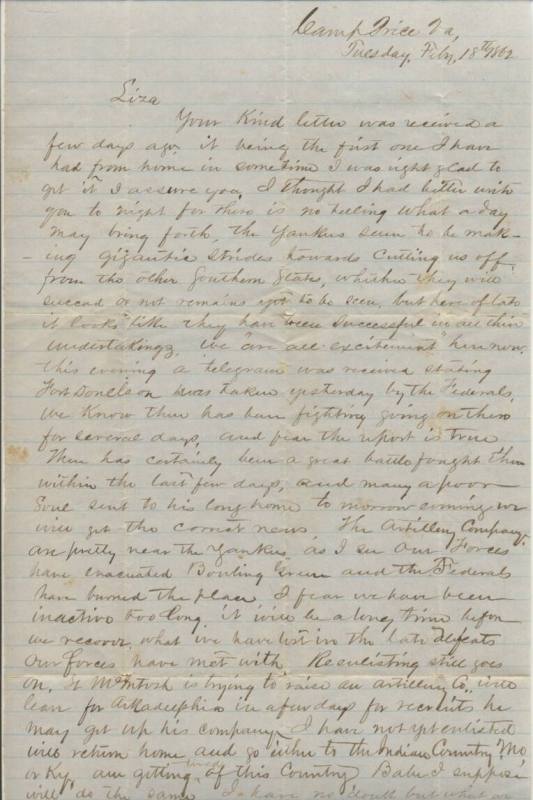 Camp Price Va,
Tuesday, Feby, 18th 1862
Liza
Your Kind letter was received a
few days ago, it being the first one I have
had from home in sometime I was right glad to
get it I assure you, I thought I had better write
you to night for there is no telling what a day
may bring forth, the Yankees seem to be mak-
-ing gigantic strides towards cutting us off
from the other Southern States, whether they will
succeed or not remains yet to be seen, but here of late
it looks like they have been successful in all their
undertakings, we are all excitement here now,
this evening a telegram was received stating
Fort Donelson was taken yesterday by the Federals,
we Know there has been fighting going on there
for several days, and fear the report is true
There has certainly been a great battle fought there
within the last few days, and many a poor
Soul sent to his long home to morrow evening we
will get the correct news The Artillery Company
are pretty near the Yankees, as I see Our Forces
have evacuated Bowling Green and the Federals
have burned the place I fear we have been
inactive too long, it will be a long time before
we recover what we have lost in the late defeats
Our forces have met with. Reenlisting still goes
on, Lt McIntosh is trying to raise an artillery Co, will
leave for Arkadelphia in a few days for recruits he
may get up his company I have not yet enlisted
will return home and go either to the Indian Country, Mo,
or Ky, am getting tired of this Country Babe I suppose
will do the same I have no doubt but what or